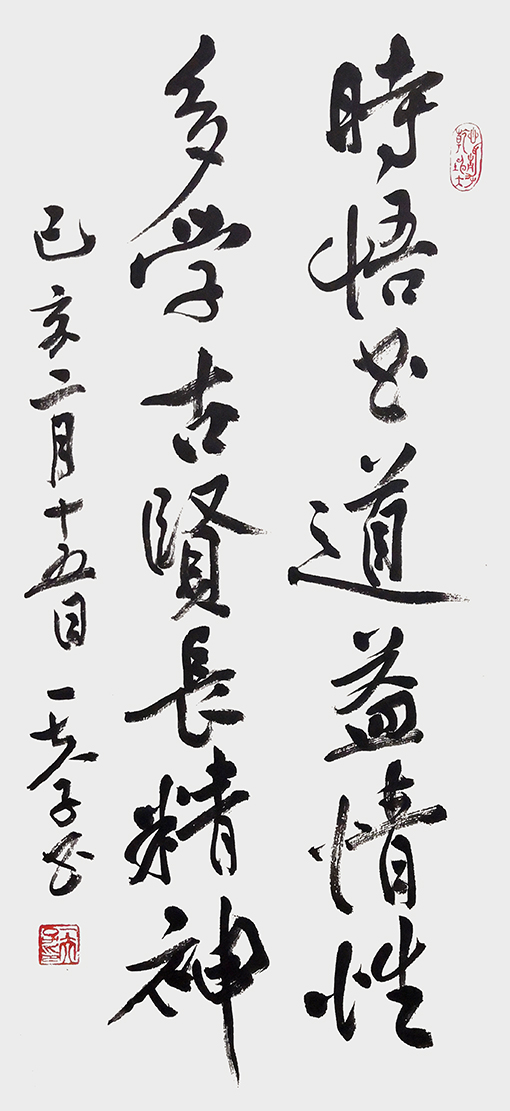 時悟书道益情性
多学古賢長精神
己亥二月十五日 一 子书